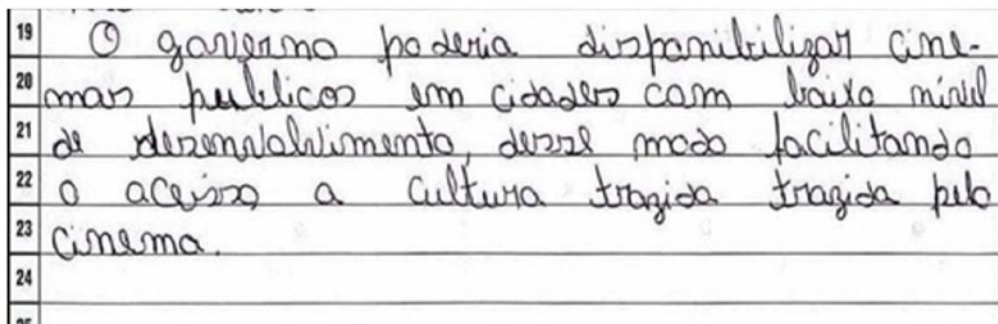 19 O governo poderia disponibilizar cine-
20 mas publicos em cidades com baixo nível
21 de desenvolvimento, desse modo facilitando
22 o acesso a cultura trazida trazida pelo
23 cinema.
24